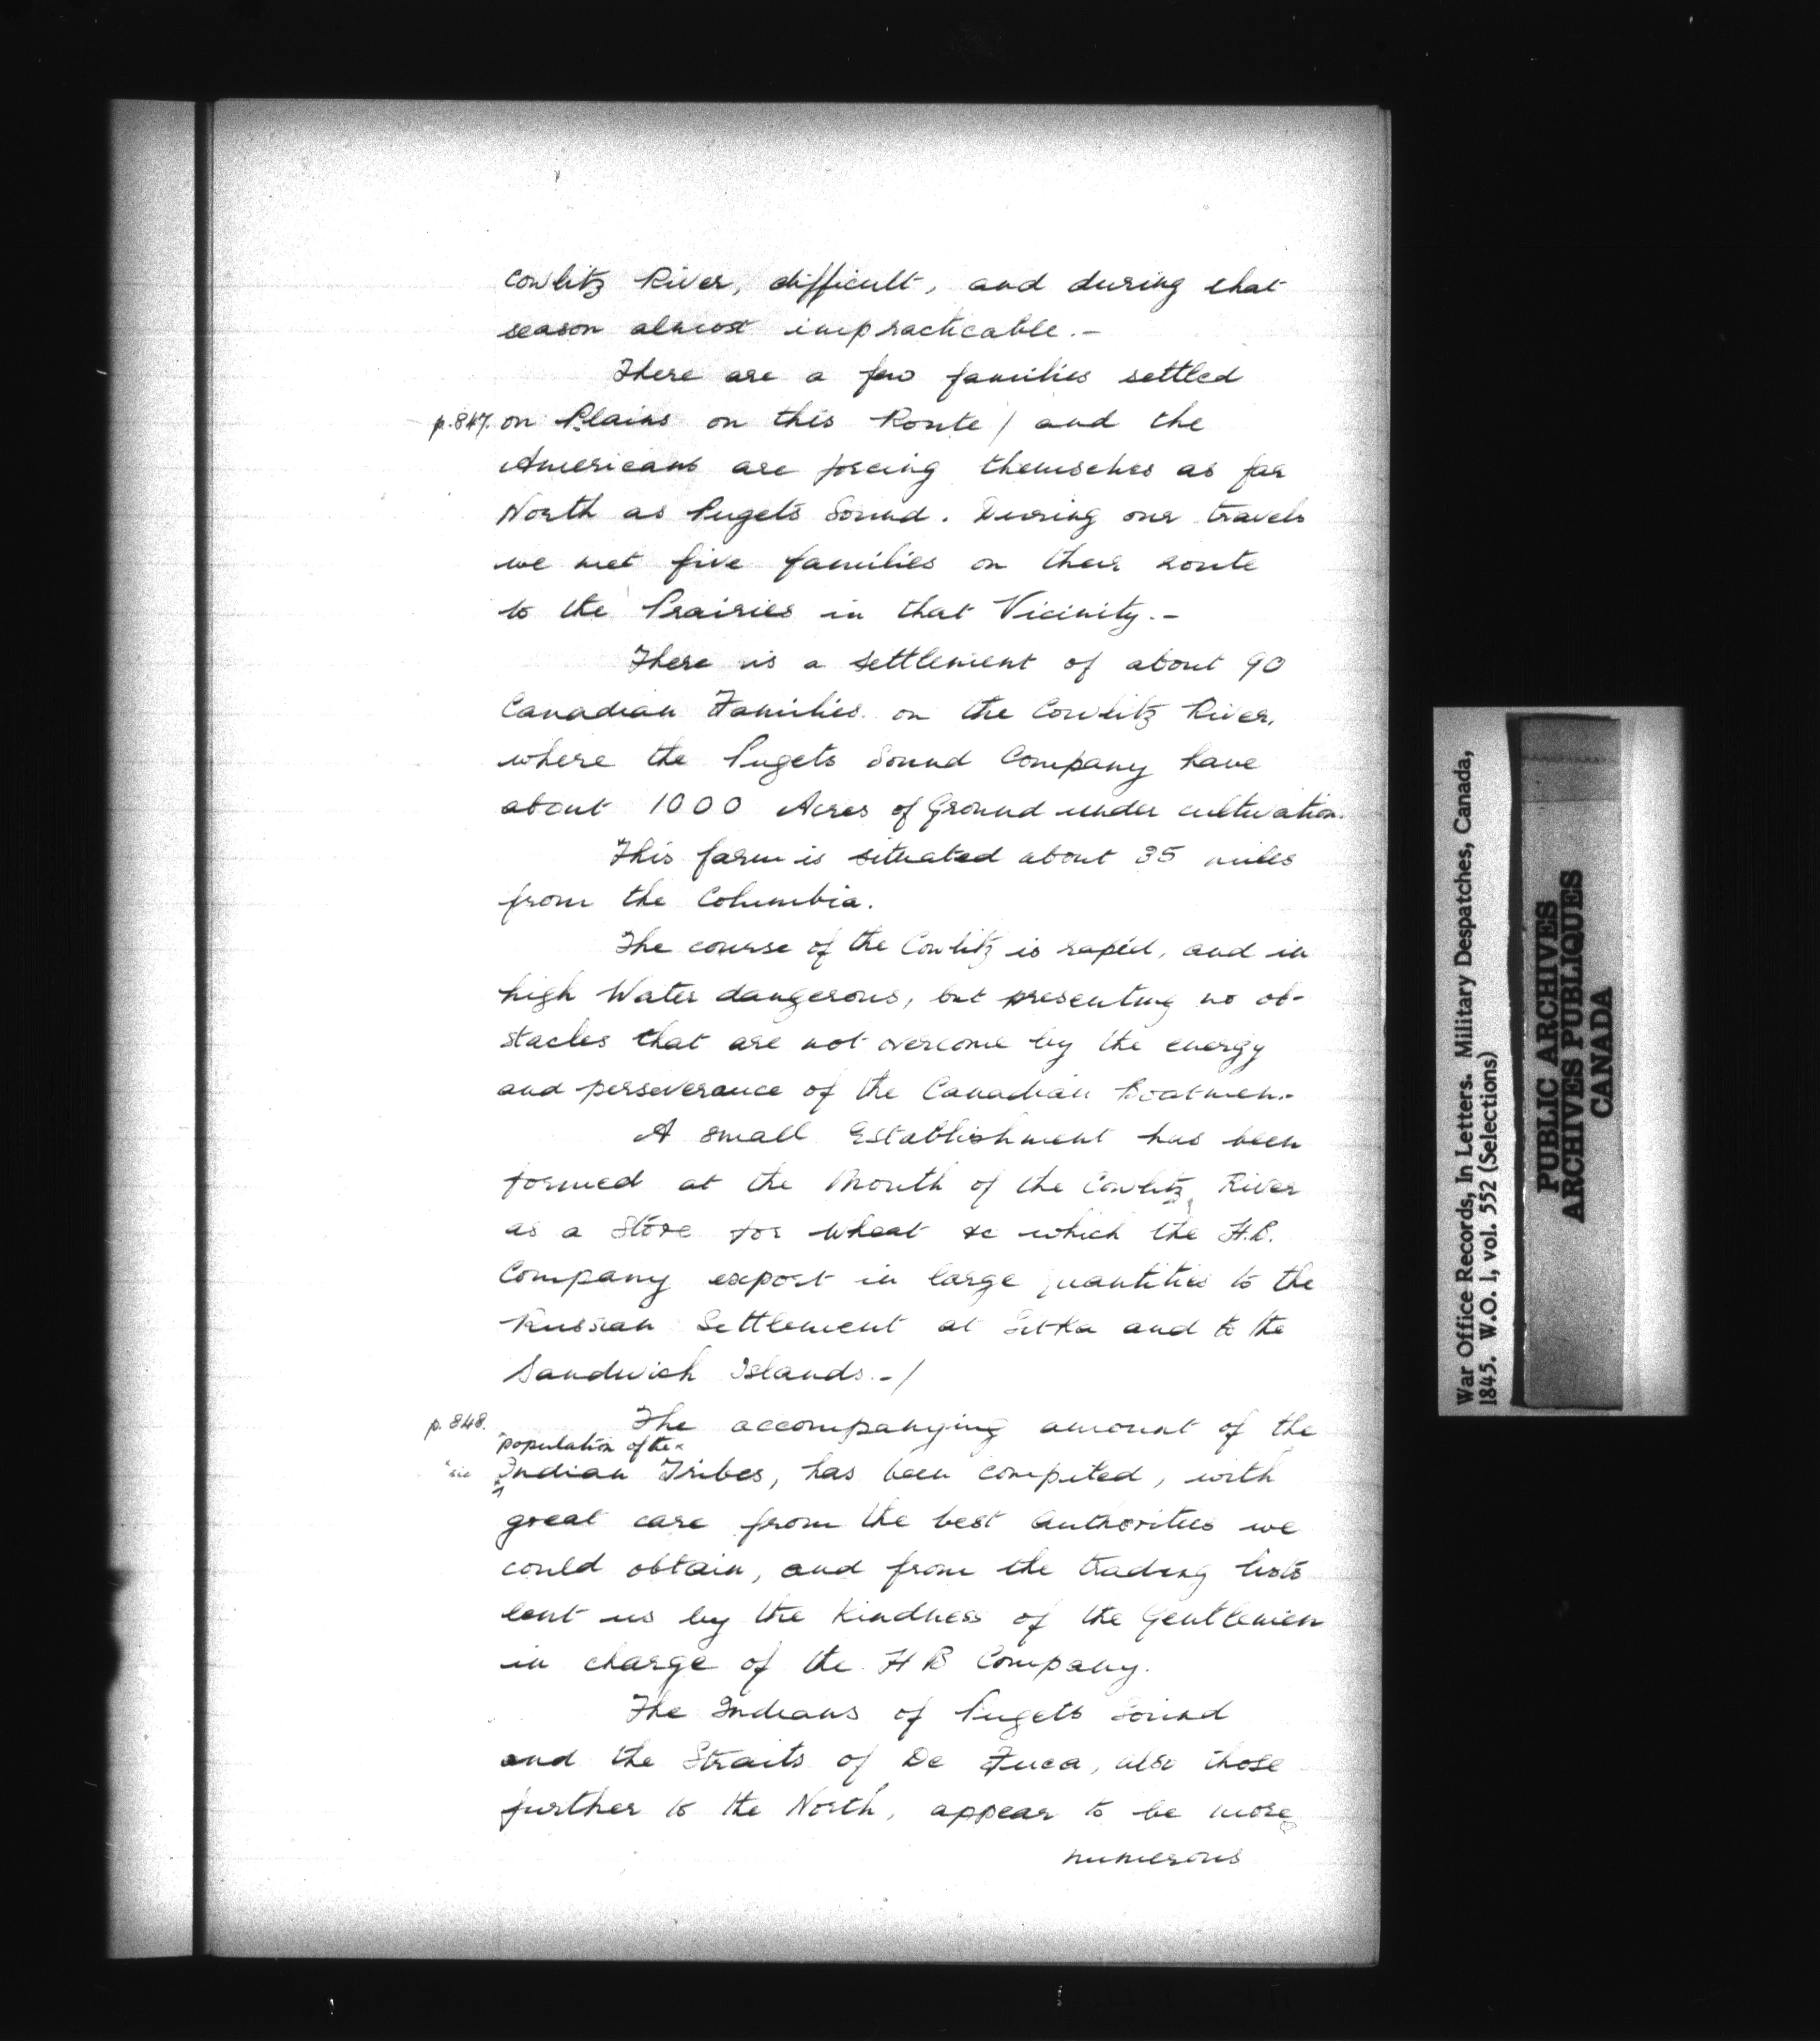 Cowlitz River, difficult, and during that
season almost impracticable.-
There are a few families settled
p.847. on Plains on this Route / and the
Americans are forcing themselves as far
North as Pugets Sound. During our travels
we met five families on their route
to the Prairies in that Vicinity.-
There is a settlement of about 90
Canadian Families on the Cowlitz River,
where the Pugets Sound Company have
about 1000 Acres of Ground under cultivation.
This farm is situated about 35 miles
from the Columbia.
The course of the Cowlitz is rapid, and in
high Water dangerous, but presenting no ob-
stacles that are not overcome by the energy
and perseverance of the Canadian Boatmen.-
A small Establishment has been
formed at the Mouth of the Cowlitz River
as a Store for Wheat &c which the H.B.
Company export in large quantities to the
Russian Settlement at Sitka and to the
Sandwich Islands.-/
p.848. The accompanying amount of the
population of the
Indian Tribes, has been computed, with
great care from the best Authorities we
could obtain, and from the trading lists
lent us by the Kindness of the Gentlemen
in charge of the H B Company.
The Indians of Pugets Sound
and the Straits of De Fuca, also those
further to the North, appear to be more
numerous
War Office Records, In Letters. Military Despatches, Canada,
1845. W.O. 1, vol. 552 (Selections)
PUBLIC ARCHIVES
ARCHIVES PUBLIQUES
CANADA